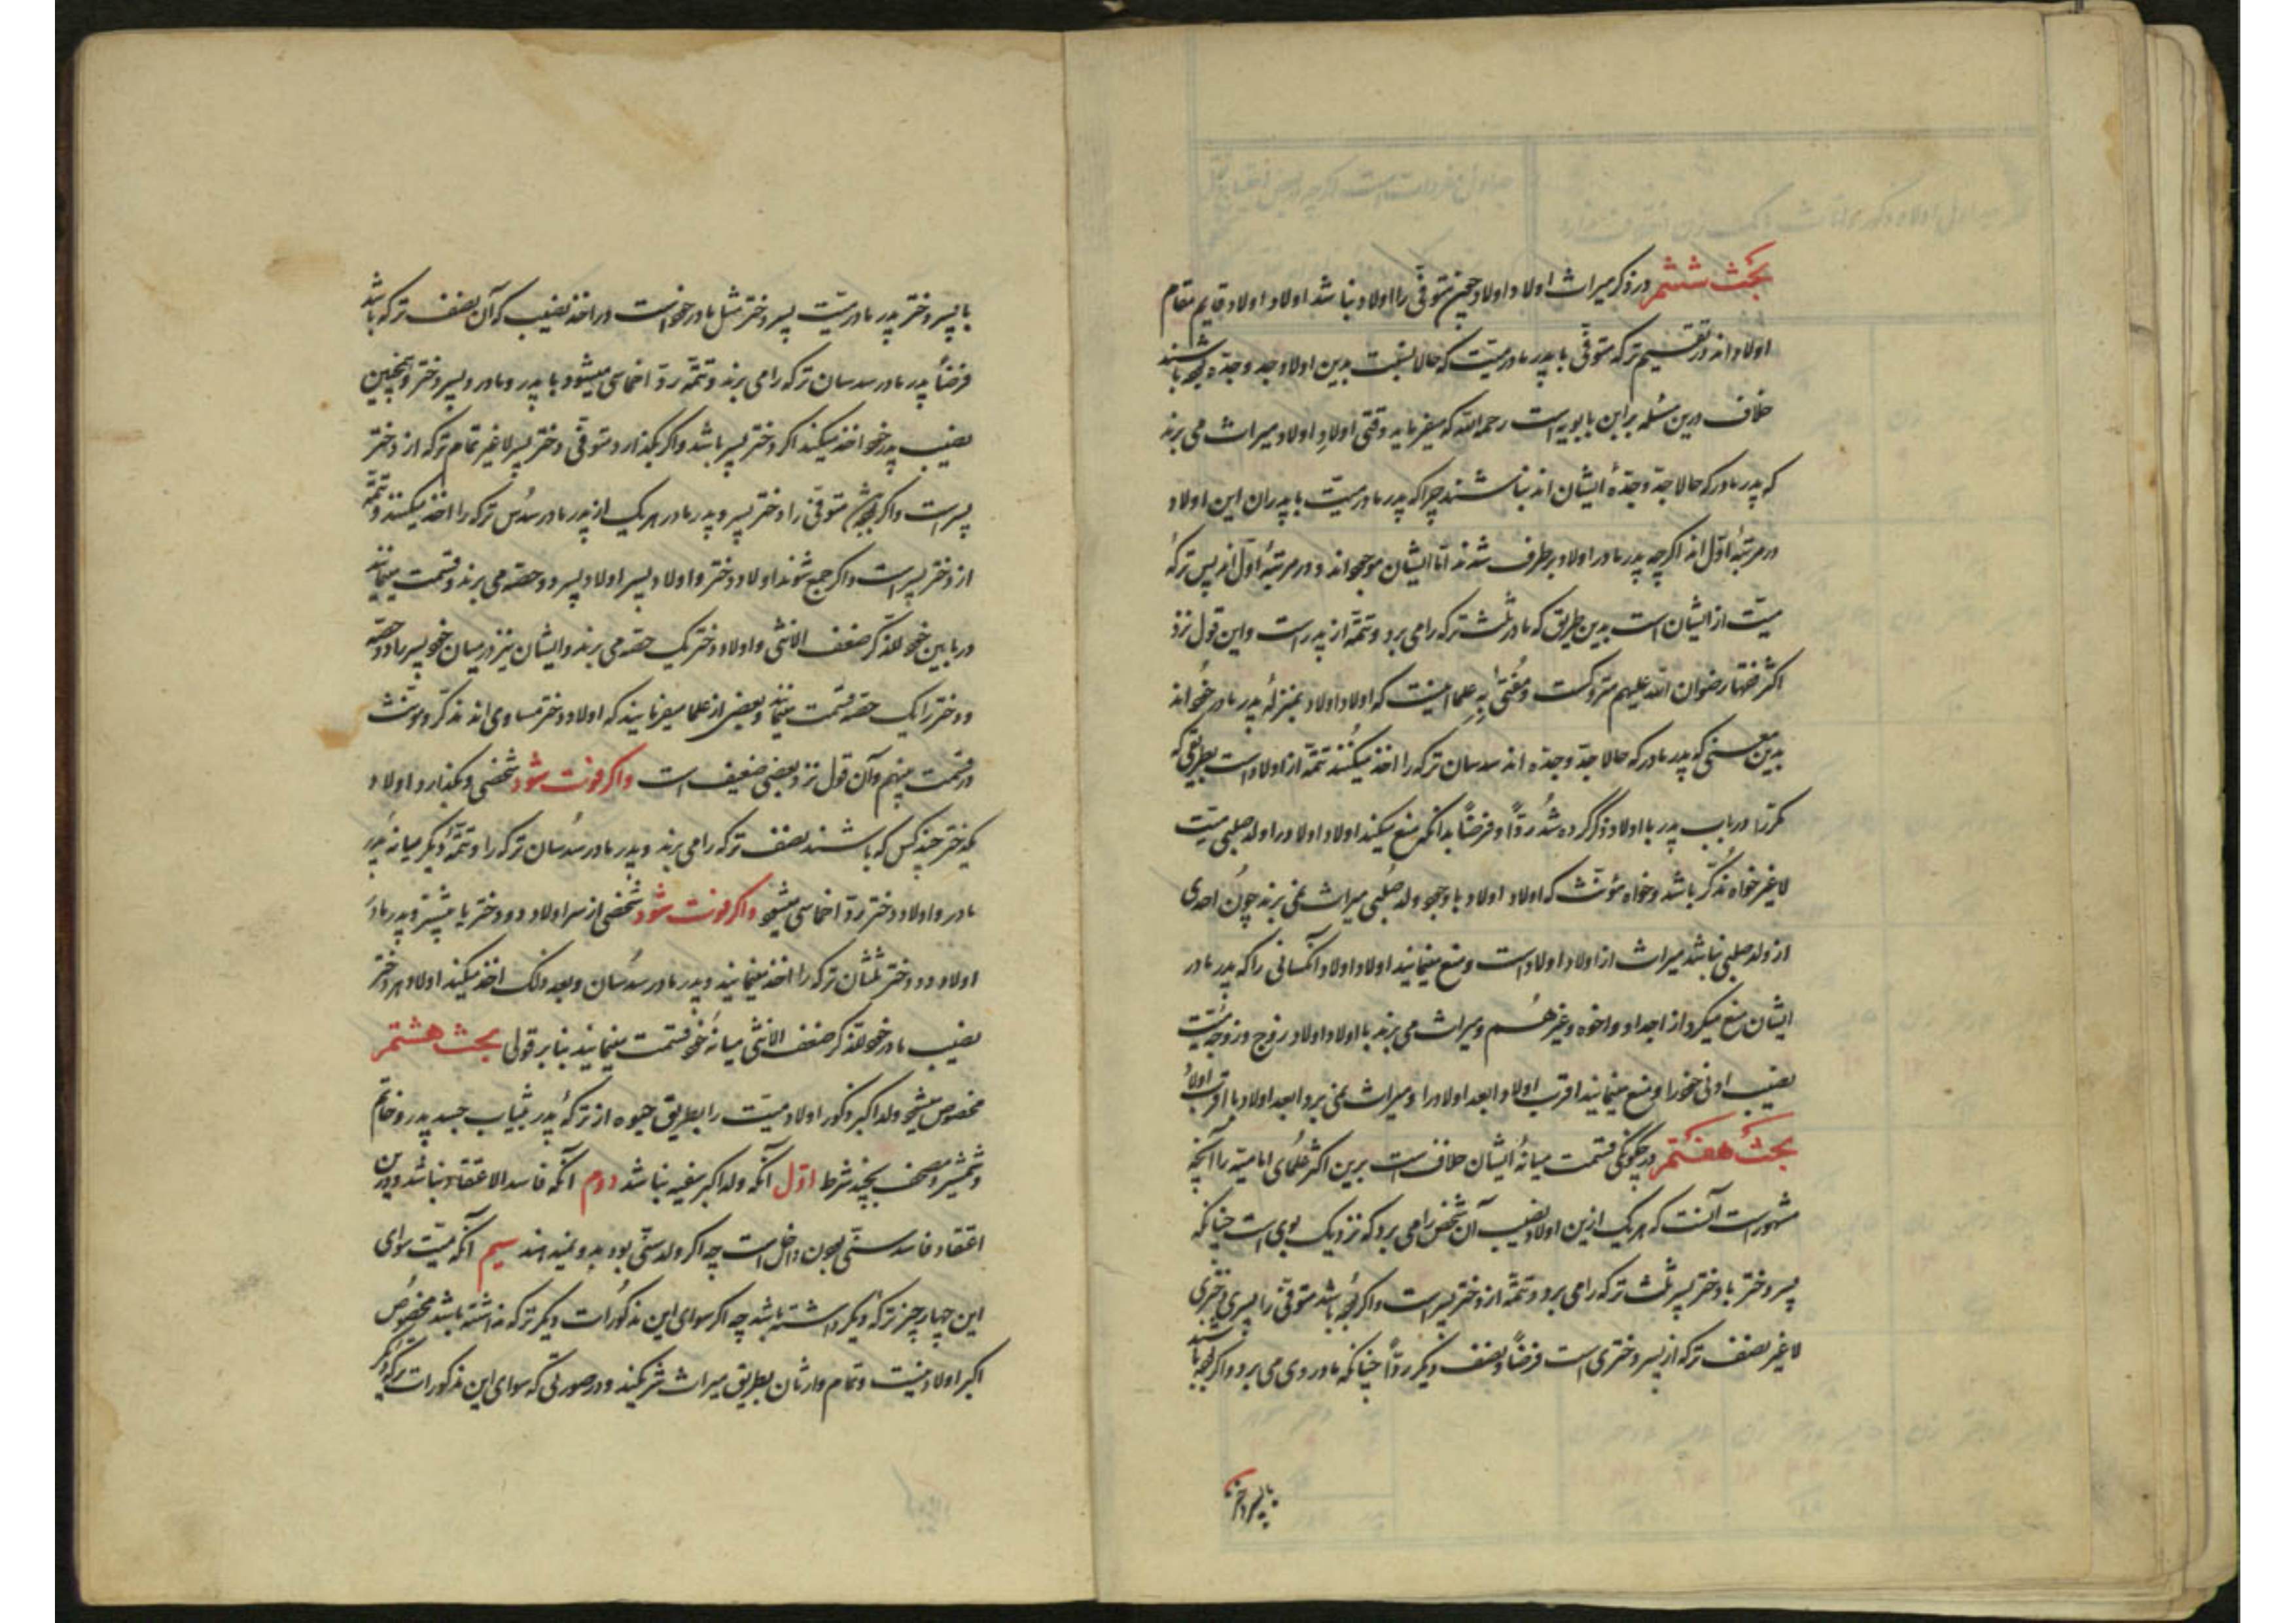 بحث ششم در ذکر میراث اولاد اولاد چون متوفی را اولاد نباشد اولاد اولاد قایم مقام
اولاد اند در تقسیم ترکه متوفی با پدر مادر میت که حالا نسبت بدین اولاد جد و جده باشند
خلاف درین مسئله بر ابن بابویه است رحمه الله که میفرماید وقتی اولادِ اولاد میراث می برند
که پدر مادر که حالا جد و جدهٔ ایشان اند نباشند چراکه پدر مادر میت با پدران این اولاد
در مرتبهٔ اول اند اکرچه پدر مادر اولاد برطرف شدند اما ایشان موجود اند و در مرتبهٔ اول اند پس ترکهٔ
میت از ایشان است بدین طریق که مادر ثلث ترکه را می برد و تتمه از پدر است و این قول نزد
اکثر فقها رضوان الله علیهم متروکست و مفتی بِه علما اینست که اولاد اولاد بمنزلهٔ پدر مادر خود اند
بدین معنی که پدر مادر که حالا جد و جده اند سدسان ترکه را اخذ میکنند تتمه از اولاد است بطریقی که
مکرر در باب پدر با اولاد ذکر کرده شد رداً و فرضاً بدانکه منع میکند اولاد اولاد را ولد صلبی میت
لاغیر خواه مذکر باشد و خواه مؤنث که اولاد اولاد با وجود ولد صُلبی میراث نمی برند چون احدی
از ولد صلبی نباشد میراث از اولاد اولاد است و منع مینمایند اولاد اولاد آنکسانی را که پدر مادر
ایشان منع میکرد از اجداد و اخوه و غیرهُم و میراث می برند با اولاد اولاد زوج و زوجهٔ میت
نصیب ادنی خود را و منع مینمایند اقرب اولاد ابعد اولاد را و میراث نمی برد ابعد اولاد با اقرب اولاد
بحث هفتم در چکونکی قسمت میانهٔ ایشان خلاف است برین اکثر علمای امامیه را آنچه
مشهور است آنست که هر یک ازین اولاد نصیب آن شخص را می برد که نزدیک بوی است چنانکه
پسر دختر با دختر پسر ثلث ترکه را می برد و تتمه از دختر پسر است و اکر بوده باشد متوفی را پسری دختری
لاغیر نصف ترکه از پسر دختری است فرضاً و نصف دیکر رداً چنانکه مادر وی می برد و اکر بوده باشند
با پسر دختر
با پسر دختر پدر مادر میت پسر دختر مثل مادر خود است در اخذ نصیب که آن نصف ترکه باشد
فرضاً پدر مادر سدسان ترکه را می برند و تتمه رد اخماسی میشود با پدر و مادر و پسر دختر و همچنین
نصیب پدر خود اخذ میکند اکر دختر پسر باشد و اکر بکذارد متوفی دختر پسر لاغیر تمام ترکه از دختر
پسر است و اکر متوفی را دختر پسر و پدر مادر هر یک از پدر مادر سُدس ترکه را اخذ میکنند و تتمه
از دختر پسر است و اکر جمع شوند اولاد دختر و اولاد پسر اولاد پسر دو حصه می برند و قسمت مینمایند
در مابین خود للذکر ضعف الانثی و اولاد دختر یک حصه می برند و ایشان نیز در میان خود پسر را دو حصه
و دختر را یک حصه قسمت مینمایند و بعضی از علما میفرمایند که اولاد دختر مساوی اند مذکر و مونث
در قسمت منهم و آن قول نزد بعضی ضعیف است و اکر فوت شود شخصی و بکذارد اولاد
یکدختر چند کس که باشند نصف ترکه را می برند و پدر مادر سُدسان ترکه را و تتمهٔ دیکر میانه پدر
مادر و اولاد دختر رد اخماسی میشود و اکر فوت شود شخصی از سر اولاد دو دختر یا بیشتر و پدر مادر
اولاد دو دختر ثلثان ترکه را اخذ مینمایند و پدر مادر سدسان و بعد ذلک اخذ میکند اولاد هر دختر
نصیب مادر خود للذکر ضعف الانثی میانهٔ خود قسمت مینمایند بنا بر قولی بحث هشتم
مخصوص میشود ولد اکبر ذکور اولاد میت را بطریق حبوه از ترکهٔ پدر ثیاب جسد پدر و خاتم
و شمشیر و مصحف بچند شرط اول آنکه ولد اکبر سفیه نباشد دوم آنکه فاسد الاعتقاد نباشد و درین
اعتقاد فاسد سنی بودن داخل است چه اکر ولد سنی بود بدو نمیدهند سیم آنکه میت سوای
این چهار چیز ترکهٔ دیکر داشته باشد چه اکر سوای این مذکورات دیکر ترکه نداشته باشد مخصوص
اکبر اولاد نیست و تمام وارثان بطریق میراث شریکند و در صورتی که سوای این مذکورات ترکهٔ دیکر